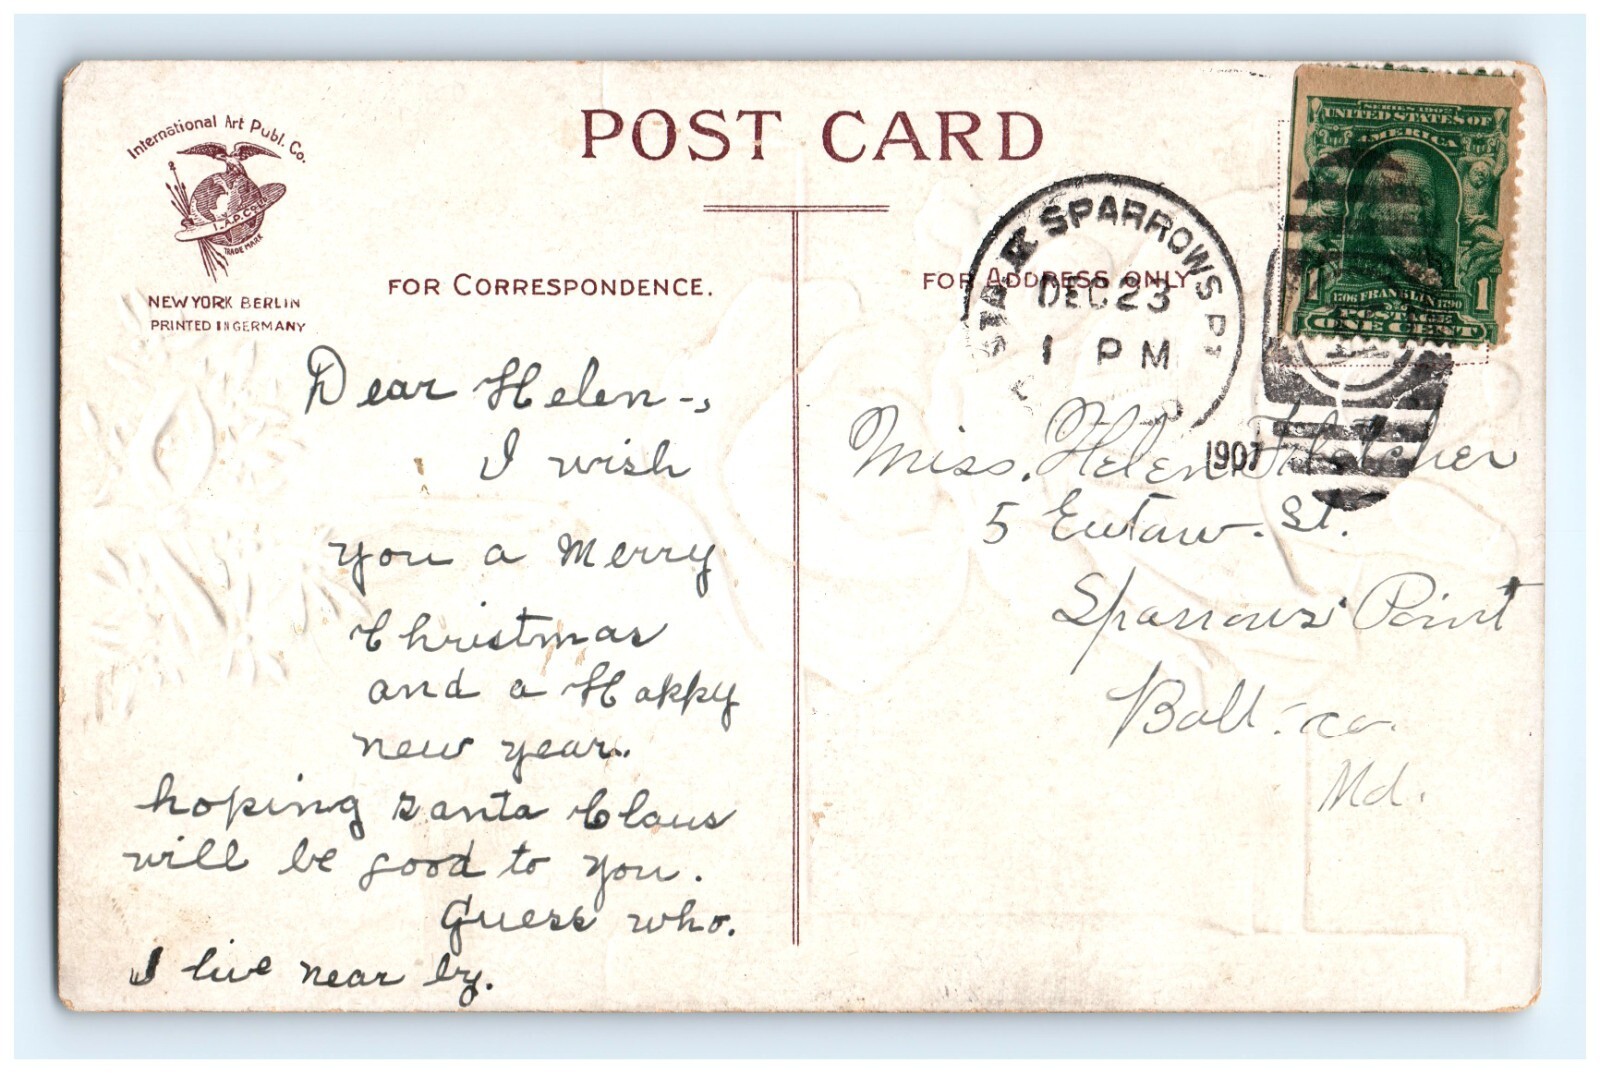 International Art Publ. Co.
I.A.P.CO.
TRADE MARK
NEW YORK BERLIN
PRINTED IN GERMANY
POST CARD
FOR CORRESPONDENCE.
Dear Helen -,
I wish
you a Merry
Christmas
and a Happy
new year.
hoping santa Claus
will be good to you.
Guess who.
I live near by.
FOR ADDRESS ONLY
SPARROWS PT
DEC 23
1 PM
1907
SERIES 1902
UNITED STATES OF
AMERICA
1 1
1706 FRANKLIN 1790
POSTAGE
ONE CENT
Miss. Helen Fletcher
5 Eutaw. St.
Sparrows Point
Balt. co.
Md.